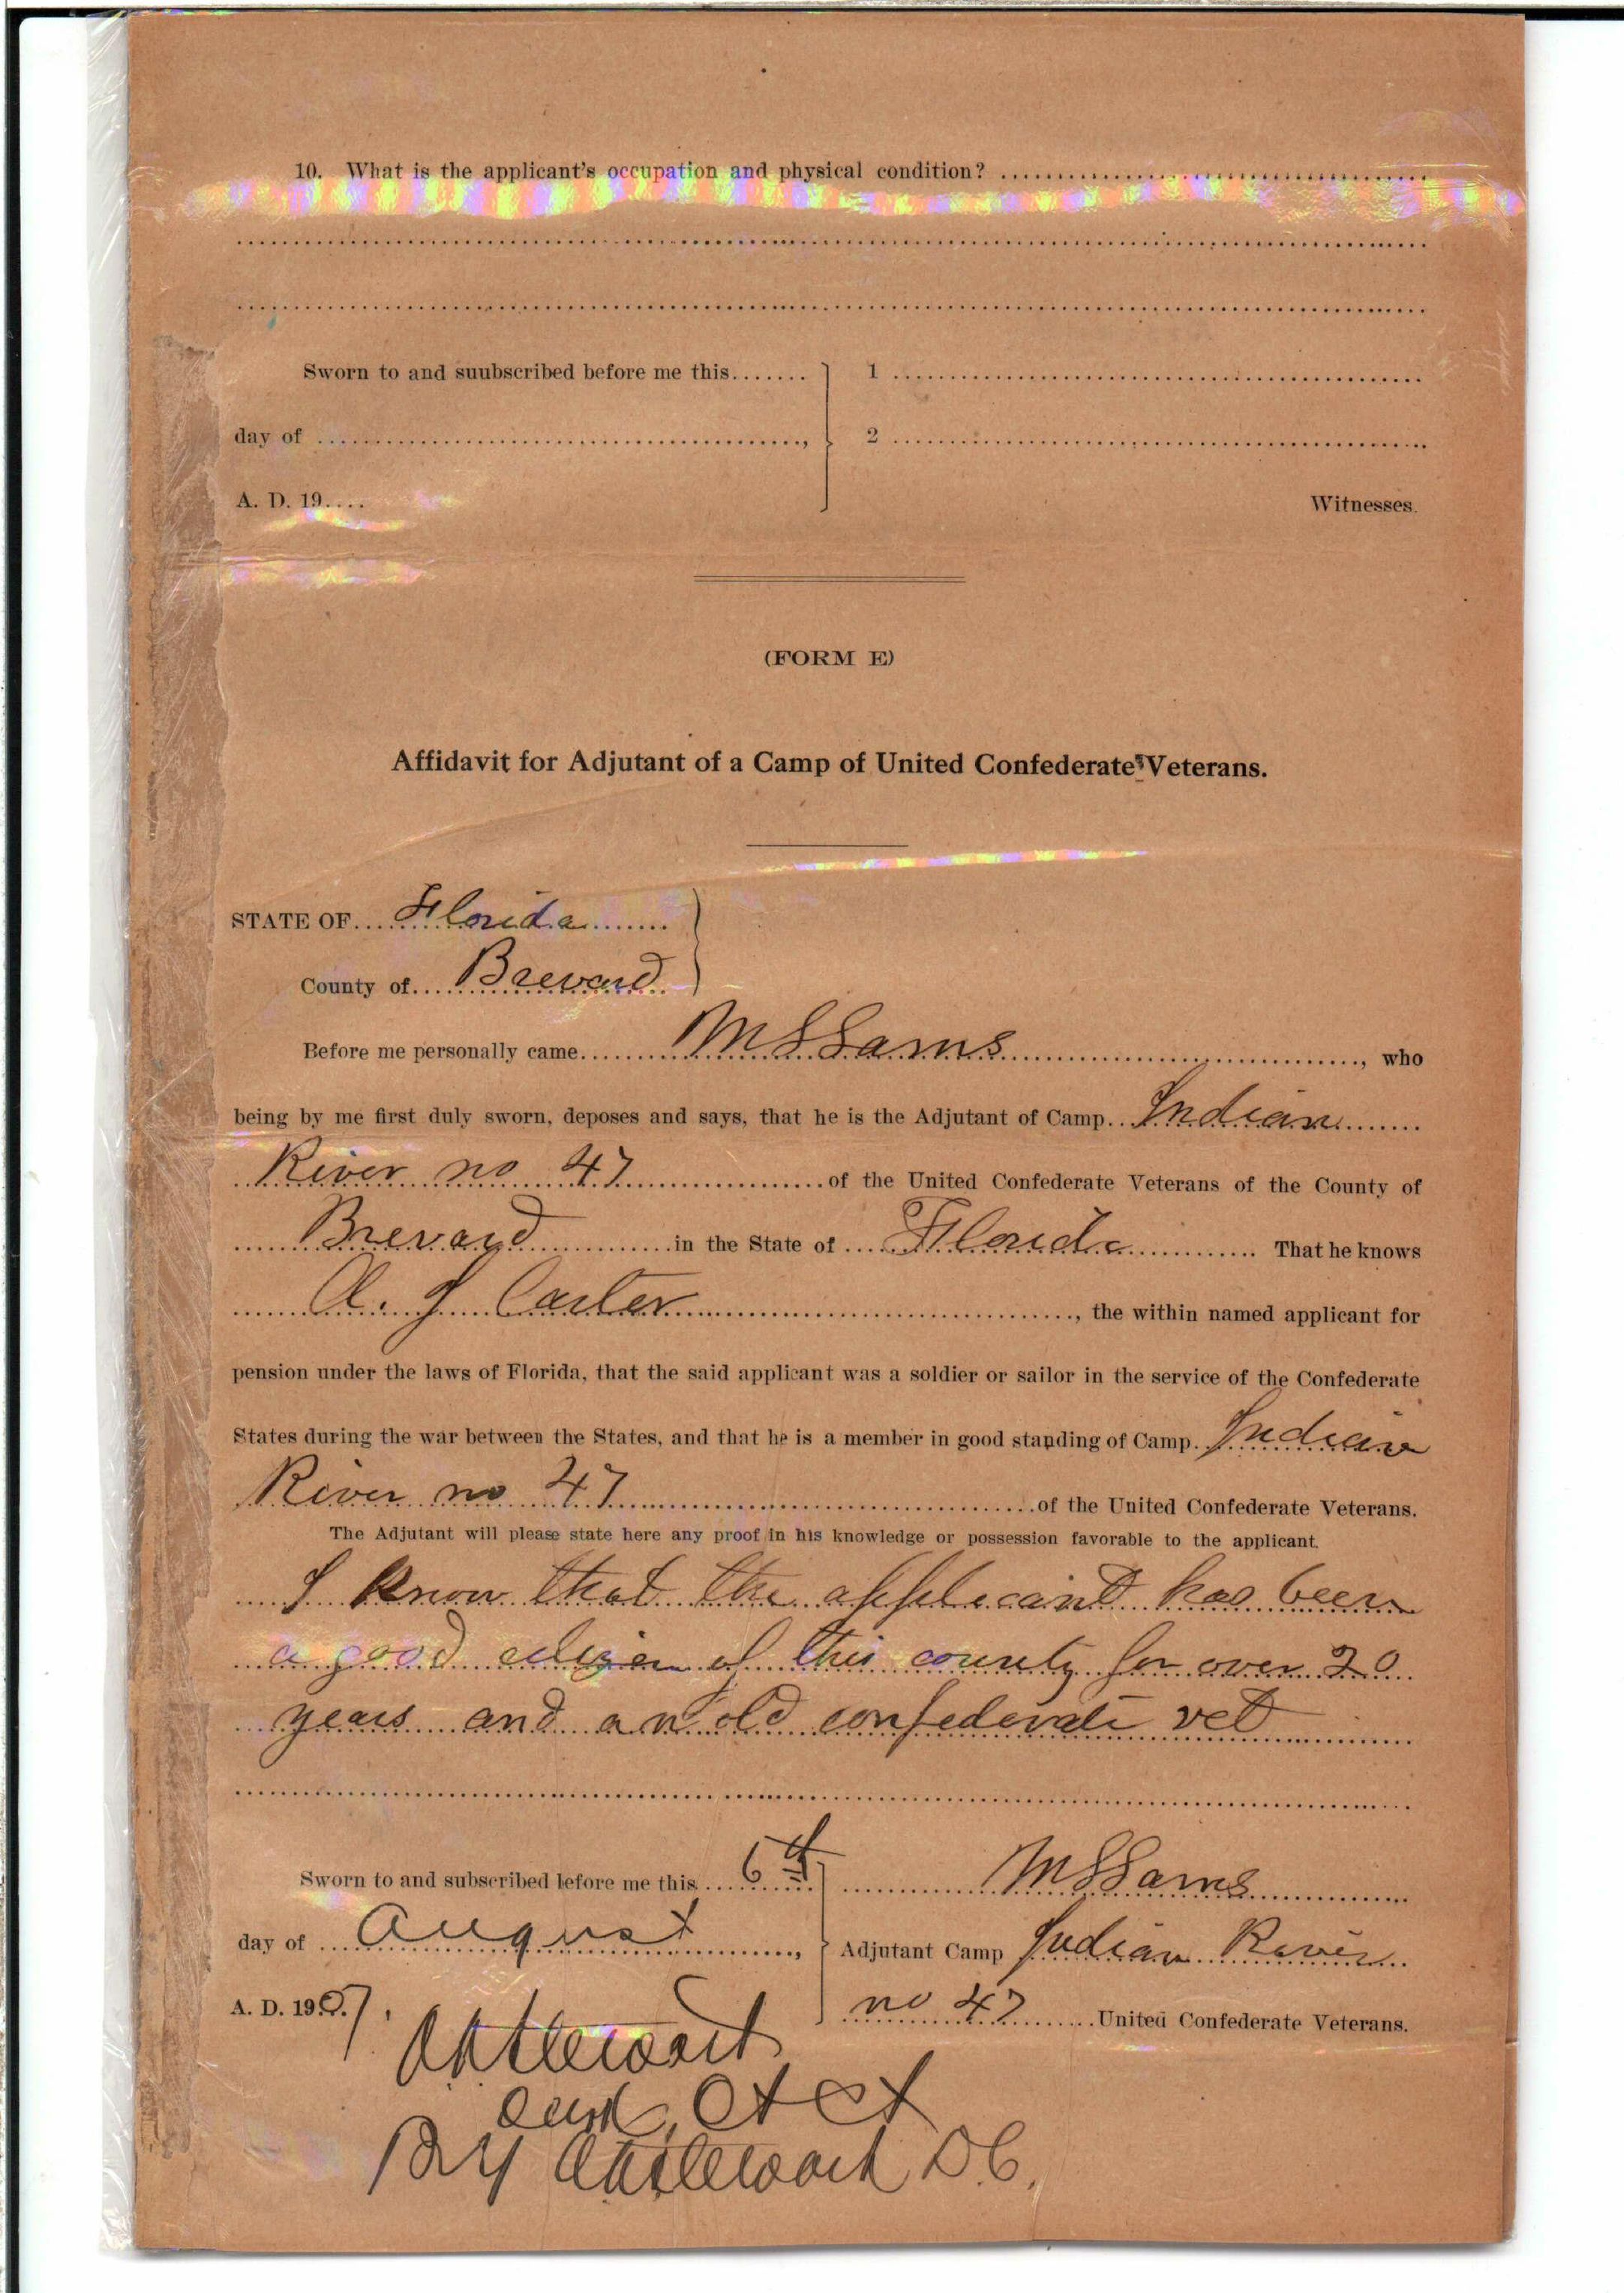 10. What is the applicant's occupation and physical condition?
Sworn to and suubscribed before me this....... 1
day of ...., 2
A. D. 19.... Witnesses.
(FORM E)
Affidavit for Adjutant of a Camp of United Confederate Veterans.
STATE OF.... Florida
County of.... Brevard
Before me personally came.... M S Sams ...., who
being by me first duly sworn, deposes and says, that he is the Adjutant of Camp.. Indian
River no 47 of the United Confederate Veterans of the County of
Brevard in the State of .... Florida .... That he knows
A. J Carter, the within named applicant for
pension under the laws of Florida, that the said applicant was a soldier or sailor in the service of the Confederate
States during the war between the States, and that he is a member in good standing of Camp. Indian
River no 47 of the United Confederate Veterans.
The Adjutant will please state here any proof in his knowledge or possession favorable to the applicant.
I know that the applicant has been
a good citizen of this county for over 20
years and an old confederate vet
Sworn to and subscribed before me this.... 6th M S Sams
day of .... August, Adjutant Camp Indian River
A. D. 1907. no 47 United Confederate Veterans.
Stewart
Clerk Ct Ct
By Stewart D C.